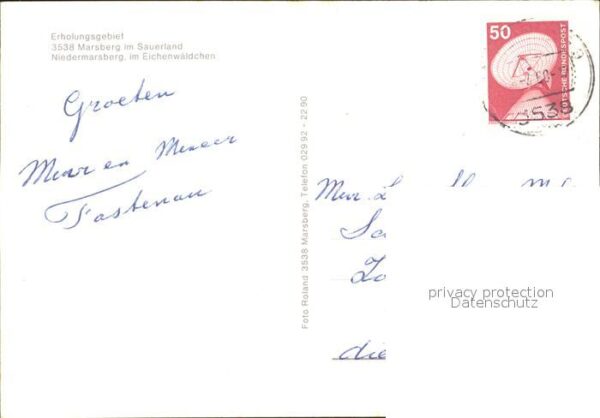 Erholungsgebiet
3538 Marsberg im Sauerland
Niedermarsberg, im Eichenwäldchen
Groeten
Mevr en Meneer
Fastenau
Foto Roland 3538 Marsberg, Telefon 029 92 - 22 90
50
DEUTSCHE BUNDESPOST
3538
Mevr.
die
privacy protection
Datenschutz